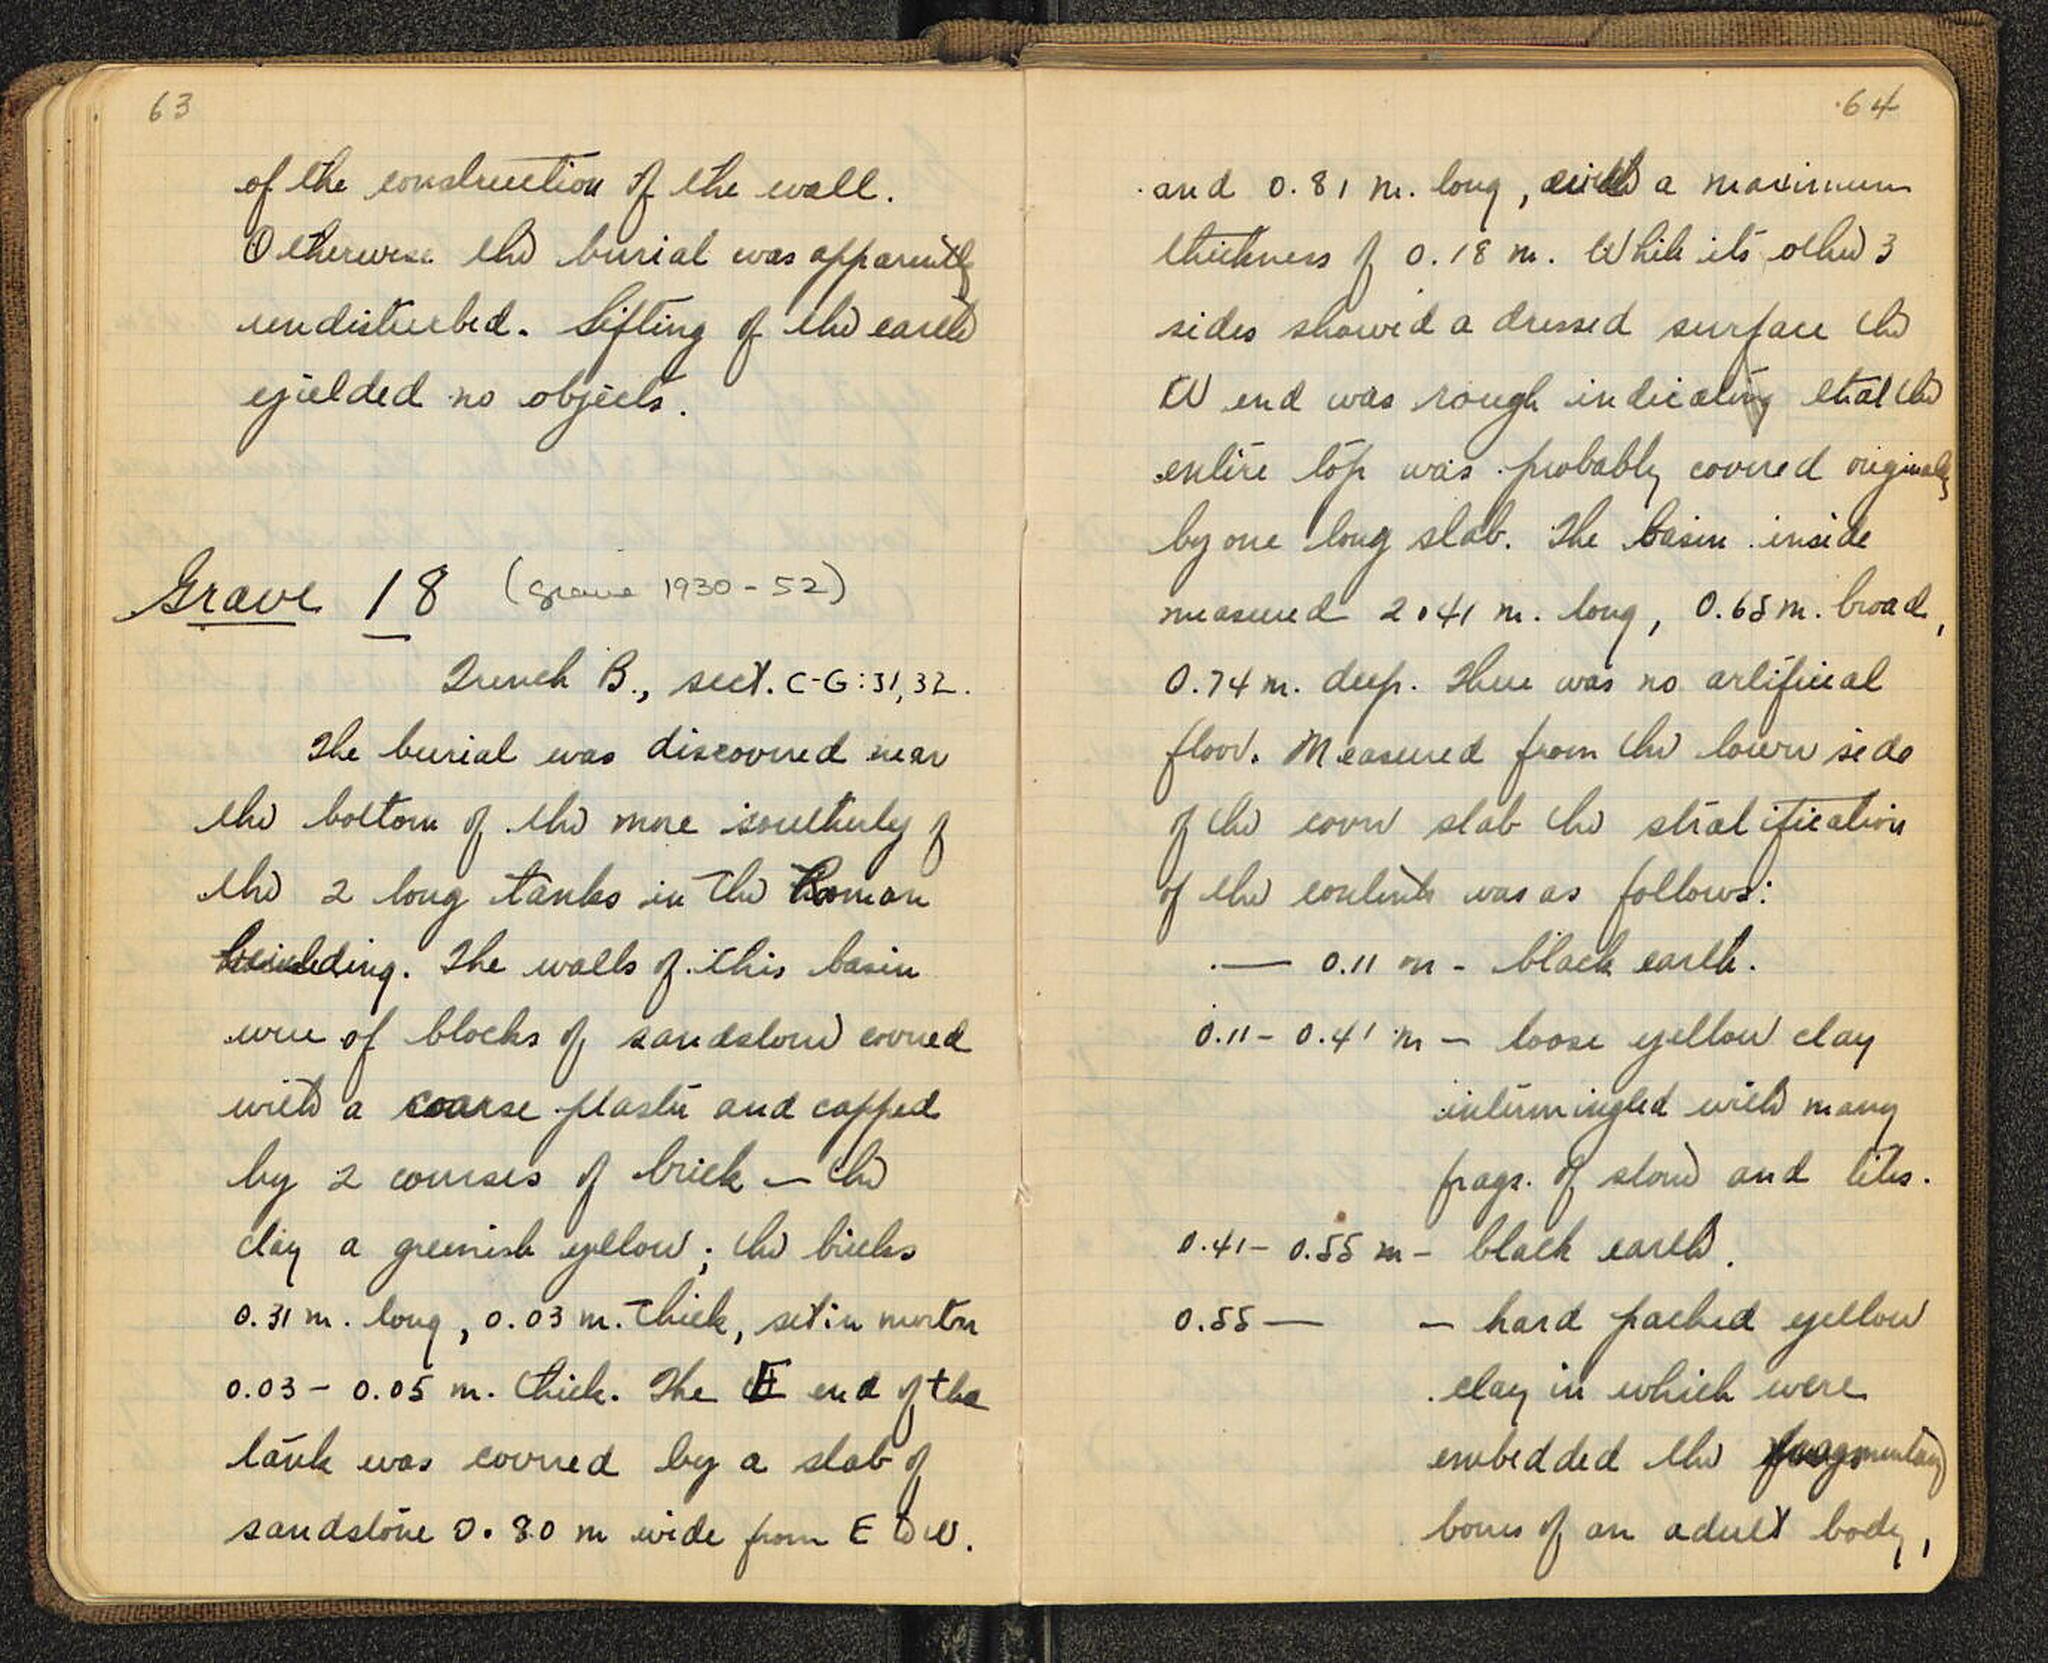 63
of the construction of the wall.
Otherwise the burial was apparently
undisturbed. Sifting of the earth
yielded no objects.
Grave 18 (grave 1930-52)
Trench B., sect. C-G:31,32.
The burial was discovered near
the bottom of the more southerly of
the 2 long tanks in the Roman
building. The walls of this basin
were of blocks of sandstone covered
with a coarse plaster and capped
by 2 courses of brick — the
clay a greenish yellow; the bricks
0.31 m. long, 0.03 m. thick, set in mortar
0.03 - 0.05 m. thick. The E end of the
tank was covered by a slab of
sandstone 0.80 m wide from E to W.
64
and 0.81 m. long, with a maximum
thickness of 0.18 m. While its other 3
sides showed a dressed surface the
W end was rough indicating that the
entire top was probably covered originally
by one long slab. The basin inside
measured 2.41 m. long, 0.65 m. broad,
0.74 m. deep. There was no artificial
floor. Measured from the lower side
of the cover slab the stratification
of the contents was as follows:
— 0.11 m - black earth.
0.11 - 0.41 m — loose yellow clay
intermingled with many
frags. of stone and tiles.
0.41 - 0.55 m - black earth.
0.55 — — hard packed yellow
clay in which were
embedded the fragmentary
bones of an adult body,